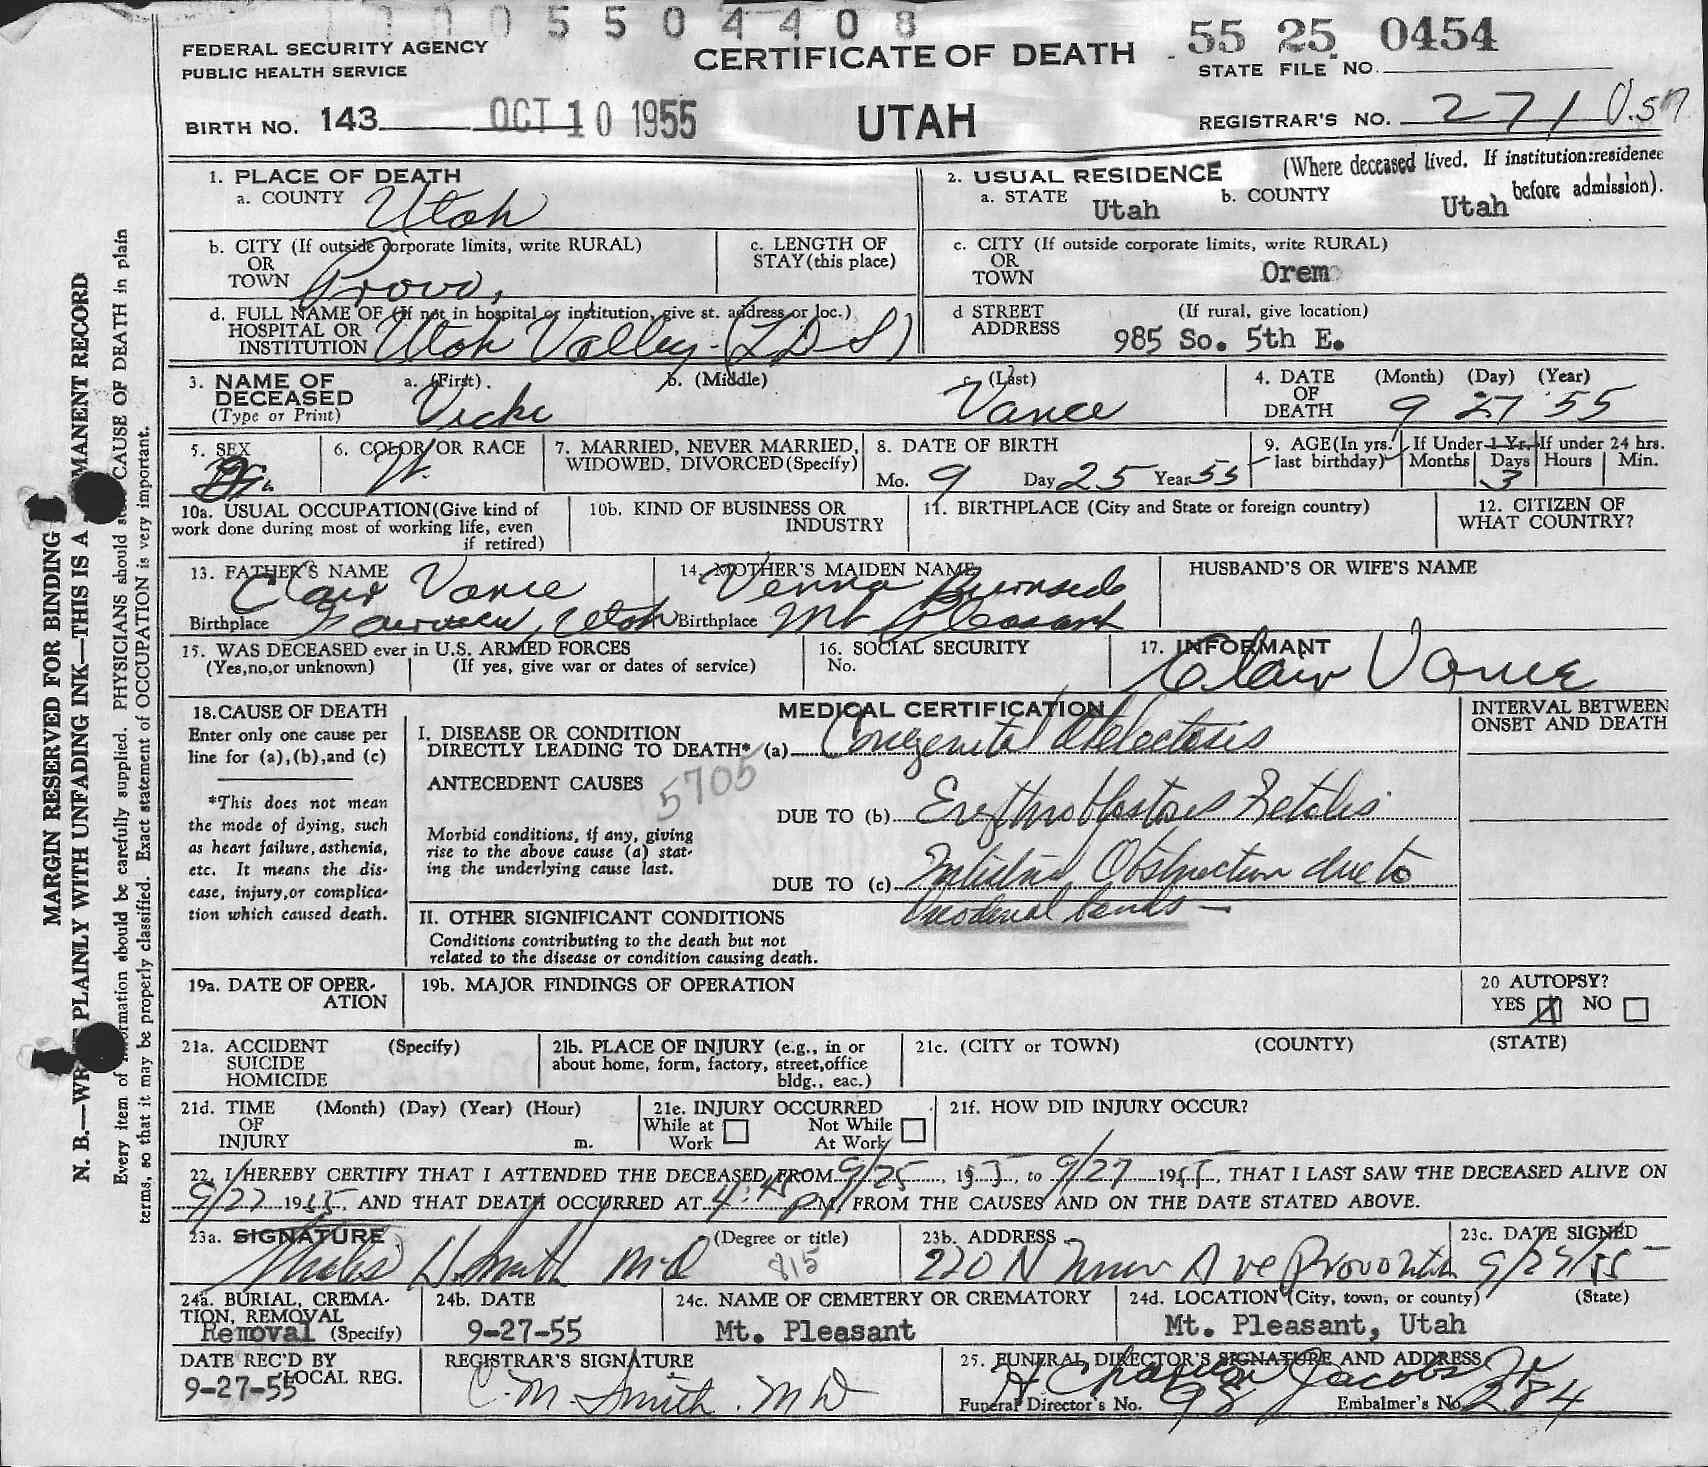 1 0 0 0 5 5 0 4 4 0 8
FEDERAL SECURITY AGENCY
PUBLIC HEALTH SERVICE
CERTIFICATE OF DEATH
55 25 0454
STATE FILE NO.
BIRTH NO. 143 OCT 10 1955
UTAH
REGISTRAR'S NO. 271
1. PLACE OF DEATH
a. COUNTY Utah
2. USUAL RESIDENCE (Where deceased lived. If institution:residence before admission).
a. STATE Utah b. COUNTY Utah
b. CITY (If outside corporate limits, write RURAL)
OR
TOWN Provo,
c. LENGTH OF
STAY (this place)
c. CITY (If outside corporate limits, write RURAL)
OR
TOWN Orem
d. FULL NAME OF (If not in hospital or institution, give st. address or loc.)
HOSPITAL OR
INSTITUTION Utah Valley (LDS)
d STREET
ADDRESS
(If rural, give location)
985 So. 5th E.
3. NAME OF
DECEASED
(Type or Print)
a. (First) b. (Middle) c. (Last)
Vicki Vance
4. DATE
OF
DEATH
(Month) (Day) (Year)
9 27 55
5. SEX
6. COLOR OR RACE
W.
7. MARRIED, NEVER MARRIED,
WIDOWED, DIVORCED (Specify)
8. DATE OF BIRTH
Mo. 9 Day 25 Year 55
9. AGE (In yrs.
last birthday)
If Under 1 Yr.
Months Days
3
If under 24 hrs.
Hours Min.
10a. USUAL OCCUPATION (Give kind of
work done during most of working life, even
if retired)
10b. KIND OF BUSINESS OR
INDUSTRY
11. BIRTHPLACE (City and State or foreign country)
12. CITIZEN OF
WHAT COUNTRY?
13. FATHER'S NAME
Clair Vance
Birthplace Fairview, Utah
14. MOTHER'S MAIDEN NAME
Venna Burnside
Birthplace Mt Pleasant
HUSBAND'S OR WIFE'S NAME
15. WAS DECEASED ever in U.S. ARMED FORCES
(Yes,no,or unknown) (If yes, give war or dates of service)
16. SOCIAL SECURITY
No.
17. INFORMANT
Clair Vance
18. CAUSE OF DEATH
Enter only one cause per
line for (a),(b),and (c)
*This does not mean
the mode of dying, such
as heart failure, asthenia,
etc. It means the dis-
ease, injury, or complica-
tion which caused death.
MEDICAL CERTIFICATION
I. DISEASE OR CONDITION
DIRECTLY LEADING TO DEATH* (a) Congenital Atelectasis
ANTECEDENT CAUSES
5705
Morbid conditions, if any, giving
rise to the above cause (a) stat-
ing the underlying cause last.
DUE TO (b) Erythroblastosis Fetalis
DUE TO (c) Intestinal Obstruction due to
Duodenal bands
II. OTHER SIGNIFICANT CONDITIONS
Conditions contributing to the death but not
related to the disease or condition causing death.
INTERVAL BETWEEN
ONSET AND DEATH
19a. DATE OF OPER-
ATION
19b. MAJOR FINDINGS OF OPERATION
20 AUTOPSY?
YES X NO
21a. ACCIDENT (Specify)
SUICIDE
HOMICIDE
21b. PLACE OF INJURY (e.g., in or
about home, form, factory, street,office
bldg., eac.)
21c. (CITY or TOWN) (COUNTY) (STATE)
21d. TIME (Month) (Day) (Year) (Hour)
OF
INJURY m.
21e. INJURY OCCURRED
While at Not While
Work At Work
21f. HOW DID INJURY OCCUR?
22. I HEREBY CERTIFY THAT I ATTENDED THE DECEASED FROM 9/25, 1955, to 9/27 1955, THAT I LAST SAW THE DECEASED ALIVE ON
9/27 1955, AND THAT DEATH OCCURRED AT 4:45 PM, FROM THE CAUSES AND ON THE DATE STATED ABOVE.
23a. SIGNATURE (Degree or title)
H. Smith M.D 815
23b. ADDRESS
220 N Ave Provo Utah
23c. DATE SIGNED
9/27/55
24a. BURIAL, CREMA-
TION, REMOVAL
Removal (Specify)
24b. DATE
9-27-55
24c. NAME OF CEMETERY OR CREMATORY
Mt. Pleasant
24d. LOCATION (City, town, or county) (State)
Mt. Pleasant, Utah
DATE REC'D BY
LOCAL REG.
9-27-55
REGISTRAR'S SIGNATURE
C. M. Smith. MD
25. FUNERAL DIRECTOR'S SIGNATURE AND ADDRESS
Jacobs Jr
Funeral Director's No. 98 Embalmer's No. 284
MARGIN RESERVED FOR BINDING
N. B.—WRITE PLAINLY WITH UNFADING INK—THIS IS A PERMANENT RECORD
Every item of information should be carefully supplied. PHYSICIANS should state CAUSE OF DEATH in plain
terms, so that it may be properly classified. Exact statement of OCCUPATION is very important.